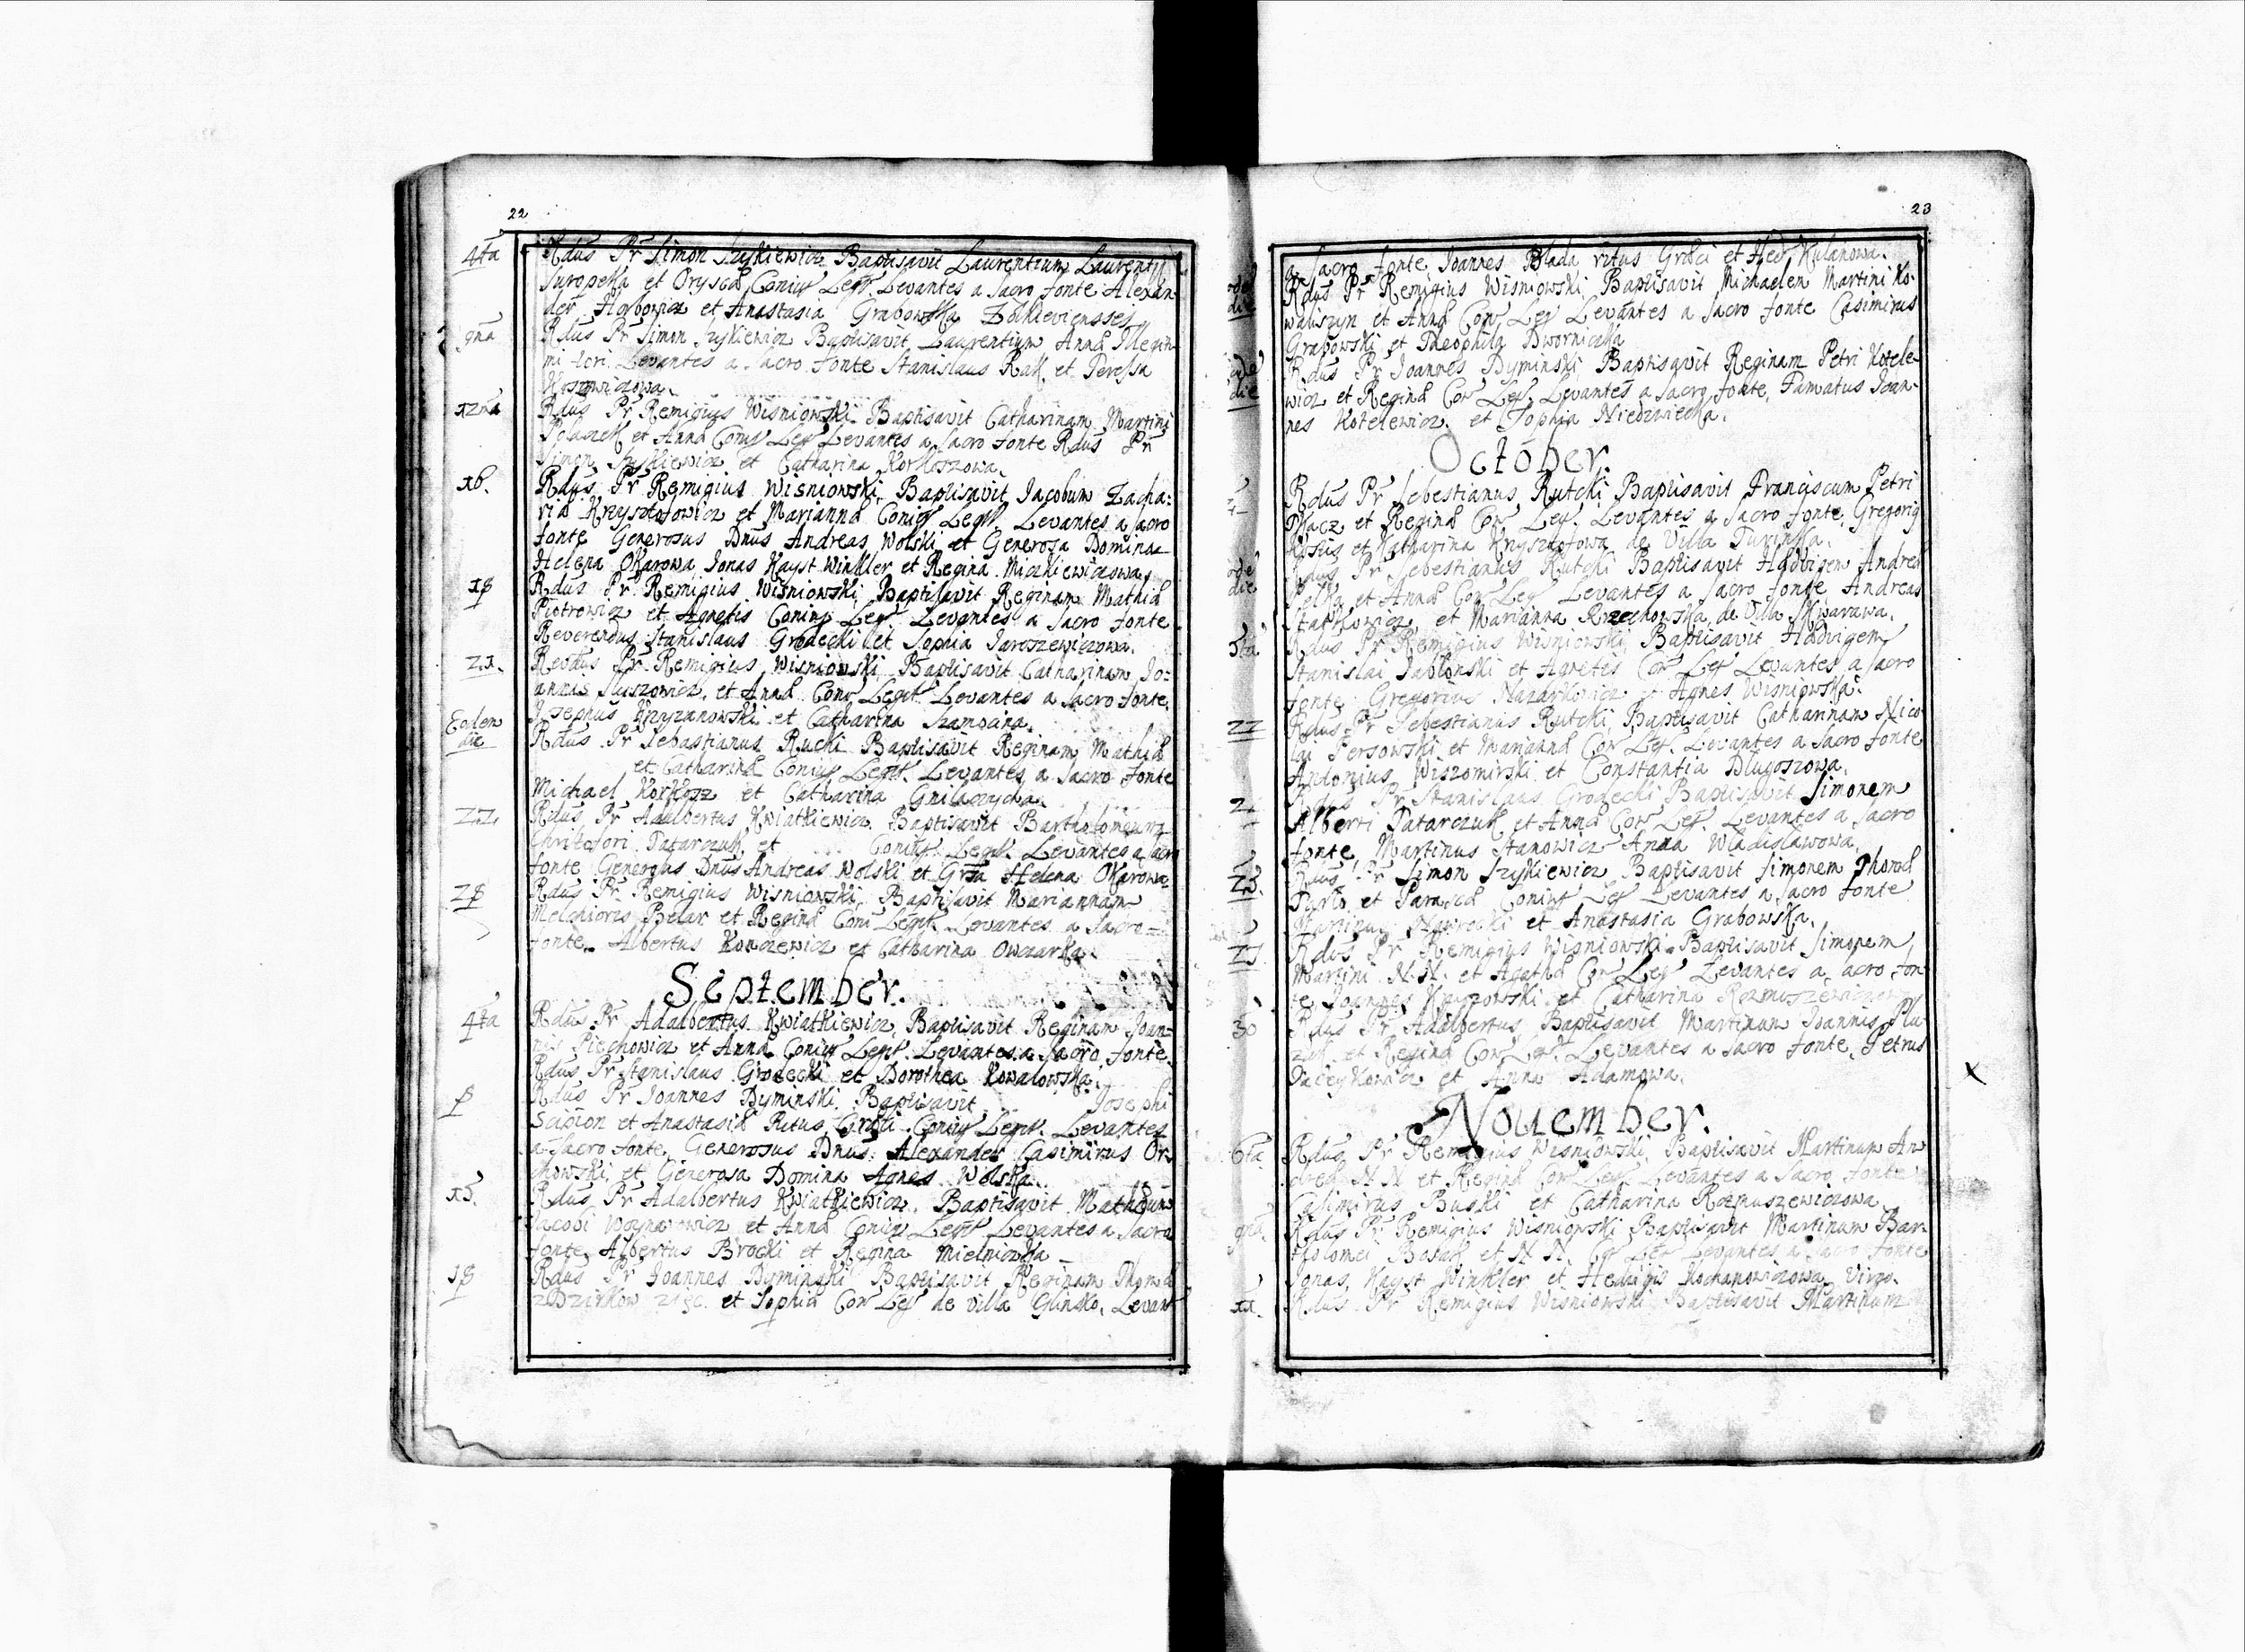 22
4ta Rdus Pr Simon Szyskiewicz Baptisavit Laurentium Laurentij
Suropeka et Orysca Coniug Legit. Levantes a Sacro fonte Alexan-
der Horbowicz et Anastasia Grabowska Zolkieviensses
9na Rdus Pr Simon Szyskiewicz Baptisavit Laurentium Anna Illegin
mi tori Levantes a Sacro fonte Stanislaus Rak et Teressa
12ma Rdus Pr Remigius Wisniowski Baptisavit Catharinam Martini
et Anna Coniug Leg Levantes a Sacro fonte Rdus Pr
Simon Szyskiewicz et Catharina Korkoszowa
16. Rdus Pr Remigius Wisniowski Baptisavit Jacobum Zacha:
ria Krzysztofowicz et Marianna Coniug Legit. Levantes a Sacro
fonte Generosus Dnus Andreas Wolski et Generosa Domina
Helena Okarowa Jonas Kayst Winkler et Regina Mickiewiczowa
18 Rdus Pr Remigius Wisniowski Baptisavit Reginam Mathia
Piotrowicz et Agnetis Coniug Leg. Levantes a Sacro fonte
Reverendus Stanislaus Grodecki et Sophia Jaroszewiczowa.
21. Revdus Pr Remigius Wisniowski Baptisavit Catharinam Jo=
annis et Anna Coniu Legit Levantes a Sacro fonte
Josephus Krzyzanowski et Catharina
Eodem die Rdus Pr Sebastianus Rucki Baptisavit Reginam Mathia
et Catharina Coniug Legit. Levantes a Sacro fonte
Michael Korkosz et Catharina
22 Rdus Pr Adalbertus Kwiatkiewicz Baptisavit Bartholomeum
Christofori Patarczuk et Coniug Legit. Levantes a Sacro
fonte Generosus Dnus Andreas Wolski et Grsa Helena Okarowa
28 Rdus Pr Remigius Wisniowski Baptisavit Mariannam
Melchioris et Regina Coni Legit. Levantes a Sacro
fonte Albertus et Catharina Owczarka
September.
4ta Rdus Pr Adalbertus Kwiatkiewicz Baptisavit Reginam Joan=
nis Piechowicz et Anna Coniug Legit. Levantes a Sacro fonte
Rdus Pr Stanislaus Grodecki et Dorothea Kowalowska
8 Rdus Pr Joannes Dyminski Baptisavit Josephi
Scipion et Anastasia Ritus Graeci Coniug Legit. Levantes
a Sacro fonte Generosus Dnus Alexander Casimirus Or-
chowski et Generosa Domina Agnes Wolska
15. Rdus Pr Adalbertus Kwiatkiewicz Baptisavit Mathaeum
Jacobi et Anna Coniug Legit Levantes a Sacro
fonte Albertus Brocki et Regina
18 Rdus Pr Joannes Dyminski Baptisavit Reginam Thoma
et Sophia Con Leg de villa Glinsko. Levan
23
a Sacro fonte Joannes Blada ritus Graeci et Hed. Kulanowa.
eode die Rdus Pr Remigius Wisniowski Baptisavit Michaelem Martini Ko-
waliszyn et Anna Con Leg Levantes a Sacro fonte Casimirus
Grabowski et Theophila Dwornicka
eode die Rdus Pr Joannes Dyminski Baptisavit Reginam Petri Kotele-
wicz et Regina Con Leg. Levantes a Sacro fonte, Famatus Joan-
nes Kotelewicz et Sophia Niedzwiecka.
October.
Rdus Pr Sebestianus Rutcki Baptisavit Franciscum Petri
et Regina Con Leg. Levantes a Sacro fonte, Gregorig
et Katharina Krysztofowa de Villa
eode die Rdus Pr Sebestianus Rutcki Baptisavit Hedvigem Andrea
et Anna Con Leg Levantes a Sacro fonte Andreas
et Marianna Rzechowska, de Villa Skwarawa.
5ta Rdus Pr Remigius Wisniowski Baptisavit Hedvigem
Stanislai Jablonski et Agnetes Con Leg Levantes a Sacro
fonte Gregorius et Agnes Wisniowska.
22 Rdus Pr Sebestianus Rutcki Baptisavit Catharinam Nico
lai Persowski et Marianna Con Leg. Levantes a Sacro fonte
Antonius Wiszomirski et Constantia Dlugoszowa.
Rdus Pr Stanislaus Grodecki Baptisavit Simonem
Alberti Patarczuk et Anna Con Leg. Levantes a Sacro
fonte Martinus Stanowicz Anna Wladislawowa,
23. Rdus Pr Simon Szyskiewicz Baptisavit Simonem
et Parasca Coniug Leg Levantes a Sacro fonte
Martinus Nawrocki et Anastasia Grabowska,
Rdus Pr Remigius Wisniowski Baptisavit Simonem
Martini N. N. et Agatha Con Leg Levantes a Sacro fon-
te Joannes et Catharina
30 Rdus Pr Adalbertus Baptisavit Martinum Joannis Plu-
et Regina Con Leg. Levantes a Sacro fonte Petrus
et Anna Adamowa.
x
November.
6ta Rdus Pr Remigius Wisniowski Baptisavit Martinum An
drea N N et Regina Con Leg. Levantes a Sacro fonte
Casimirus Buski et Catharina Rozmuszewiczowa
9na. Rdus Pr Remigius Wisniowski Baptisavit Martinum Bar-
tholomei et N N Con Leg Levantes a Sacro fonte
Jonas Kayst Winkler et Hedvigis Kochanowiczowa Virgo.
11. Rdus Pr Remigius Wisniowski Baptisavit Martinum